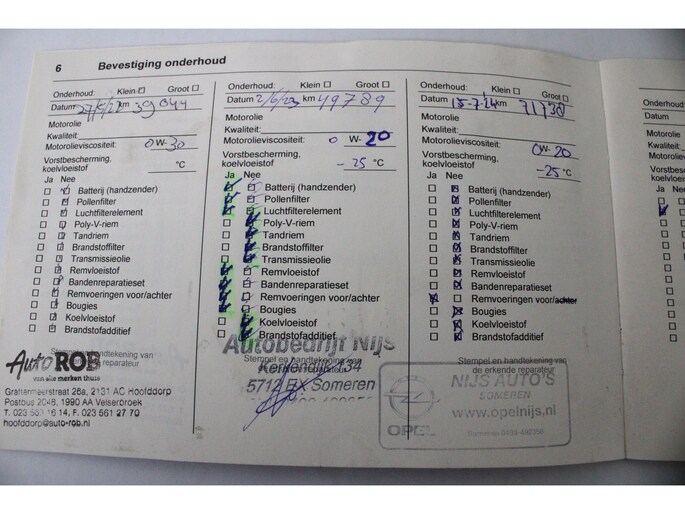 6 Bevestiging onderhoud
Onderhoud: Klein Groot
Datum km 39 044
Motorolie
Kwaliteit:
Motorolieviscositeit: 0 W- 30
Vorstbescherming,
koelvloeistof °C
Ja Nee
Batterij (handzender)
Pollenfilter
Luchtfilterelement
Poly-V-riem
Tandriem
Brandstoffilter
Transmissieolie
Remvloeistof
Bandenreparatieset
Remvoeringen voor/achter
Bougies
Koelvloeistof
Brandstofadditief
Auto ROB
van alle merken thuis
Graftermeerstraat 26a, 2131 AC Hoofddorp
Postbus 2048, 1990 AA Velserbroek
T. 023 16 14, F. 023 561 27 70
hoofddorp@auto-rob.nl
Onderhoud: Klein Groot
Datum 2/6/23 km 49789
Motorolie
Kwaliteit:
Motorolieviscositeit: 0 W- 20
Vorstbescherming,
koelvloeistof -25 °C
Ja Nee
Batterij (handzender)
Pollenfilter
Luchtfilterelement
Poly-V-riem
Tandriem
Brandstoffilter
Transmissieolie
Remvloeistof
Bandenreparatieset
Remvoeringen voor/achter
Bougies
Koelvloeistof
Brandstofadditief
Autobedrijf Nijs
Stempel en handtekening
Kerkendijk 134
5712 Someren
Onderhoud: Klein Groot
Datum 15-7-24 km 71730
Motorolie
Kwaliteit:
Motorolieviscositeit: 0W- 20
Vorstbescherming,
koelvloeistof -25 °C
Ja Nee
Batterij (handzender)
Pollenfilter
Luchtfilterelement
Poly-V-riem
Tandriem
Brandstoffilter
Transmissieolie
Remvloeistof
Bandenreparatieset
Remvoeringen voor/achter
Bougies
Koelvloeistof
Brandstofadditief
Stempel en handtekening van
de erkende reparateur
OPEL
NIJS AUTO'S
SOMEREN
www.opelnijs.nl
Onderhoud:
Datum
Motorolie
Kwaliteit:
Motorolieviscos
Vorstbescherm
koelvloeistof
Ja Nee